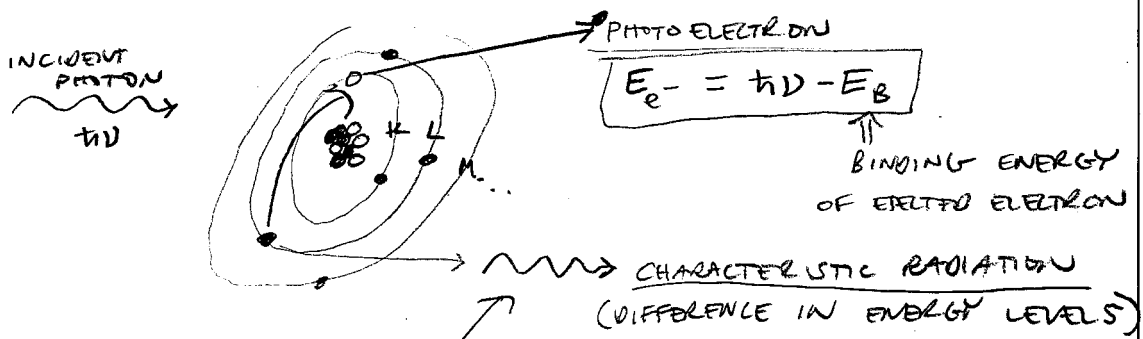 INCIDENT
PHOTON
ħν
K L M...
PHOTOELECTRON
E_e- = ħν - E_B
BINDING ENERGY
OF EJECTED ELECTRON
CHARACTERISTIC RADIATION
(DIFFERENCE IN ENERGY LEVELS)